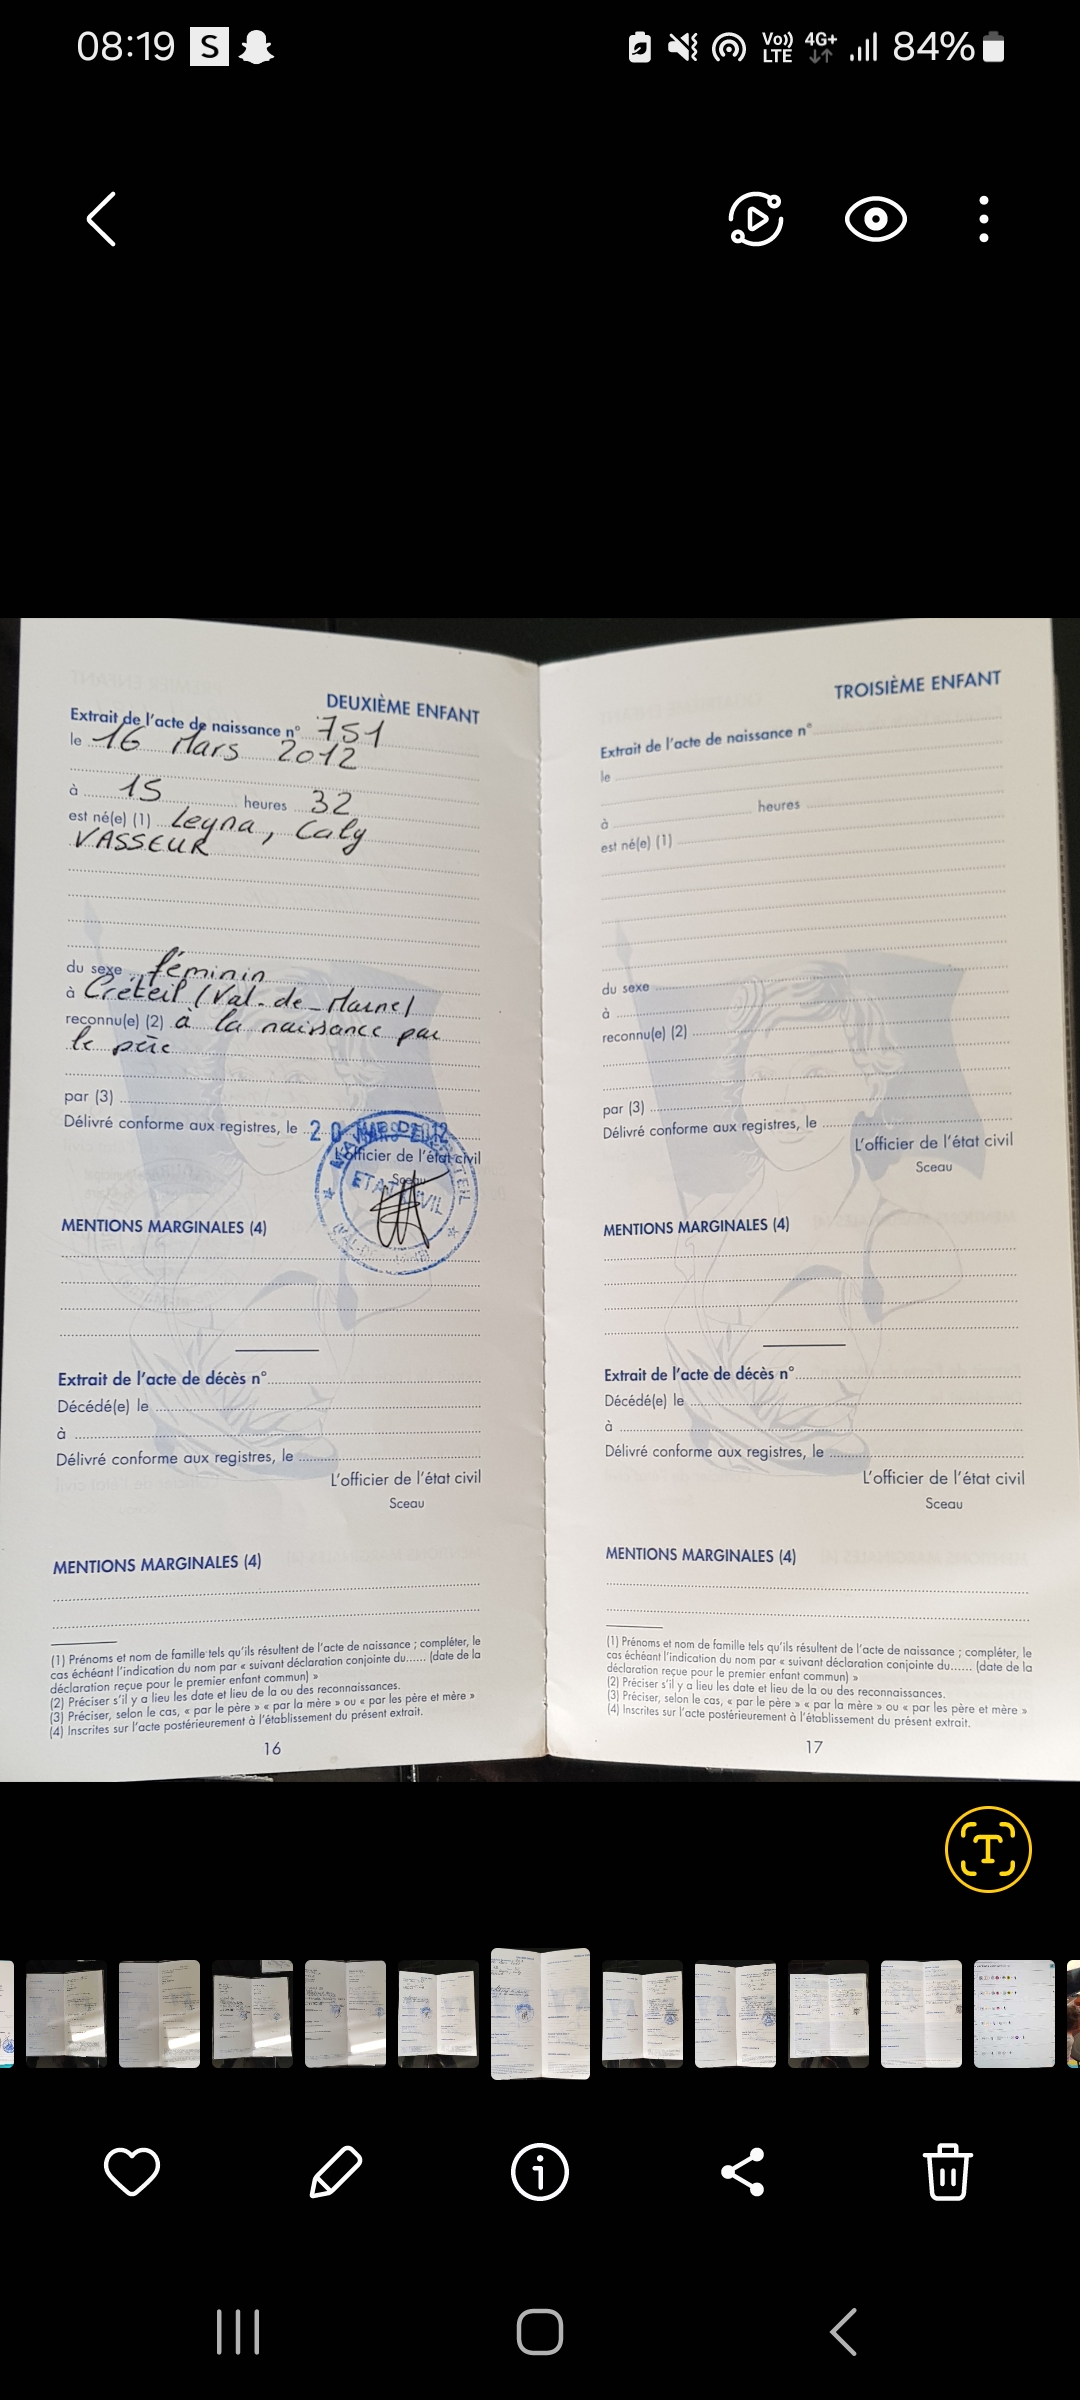 08:19 S
Vo)) LTE 4G+ 84%
DEUXIÈME ENFANT
Extrait de l'acte de naissance n° 751
le 16 Mars 2012
à 15 heures 32
est né(e) (1) Leyna, Caly
VASSEUR
du sexe féminin
à Créteil (Val-de-Marne)
reconnu(e) (2) à la naissance par
le père
par (3)
Délivré conforme aux registres, le 20 MARS 2012
L'officier de l'état civil
Sceau
ETAT CIVIL
MENTIONS MARGINALES (4)
Extrait de l'acte de décès n°
Décédé(e) le
à
Délivré conforme aux registres, le
L'officier de l'état civil
Sceau
MENTIONS MARGINALES (4)
(1) Prénoms et nom de famille tels qu'ils résultent de l'acte de naissance ; compléter, le
cas échéant l'indication du nom par « suivant déclaration conjointe du...... (date de la
déclaration reçue pour le premier enfant commun) »
(2) Préciser s'il y a lieu les date et lieu de la ou des reconnaissances.
(3) Préciser, selon le cas, « par le père » « par la mère » ou « par les père et mère »
(4) Inscrites sur l'acte postérieurement à l'établissement du présent extrait.
16
TROISIÈME ENFANT
Extrait de l'acte de naissance n°
le
à heures
est né(e) (1)
du sexe
à
reconnu(e) (2)
par (3)
Délivré conforme aux registres, le
L'officier de l'état civil
Sceau
MENTIONS MARGINALES (4)
Extrait de l'acte de décès n°
Décédé(e) le
à
Délivré conforme aux registres, le
L'officier de l'état civil
Sceau
MENTIONS MARGINALES (4)
(1) Prénoms et nom de famille tels qu'ils résultent de l'acte de naissance ; compléter, le
cas échéant l'indication du nom par « suivant déclaration conjointe du...... (date de la
déclaration reçue pour le premier enfant commun) »
(2) Préciser s'il y a lieu les date et lieu de la ou des reconnaissances.
(3) Préciser, selon le cas, « par le père » « par la mère » ou « par les père et mère »
(4) Inscrites sur l'acte postérieurement à l'établissement du présent extrait.
17
T